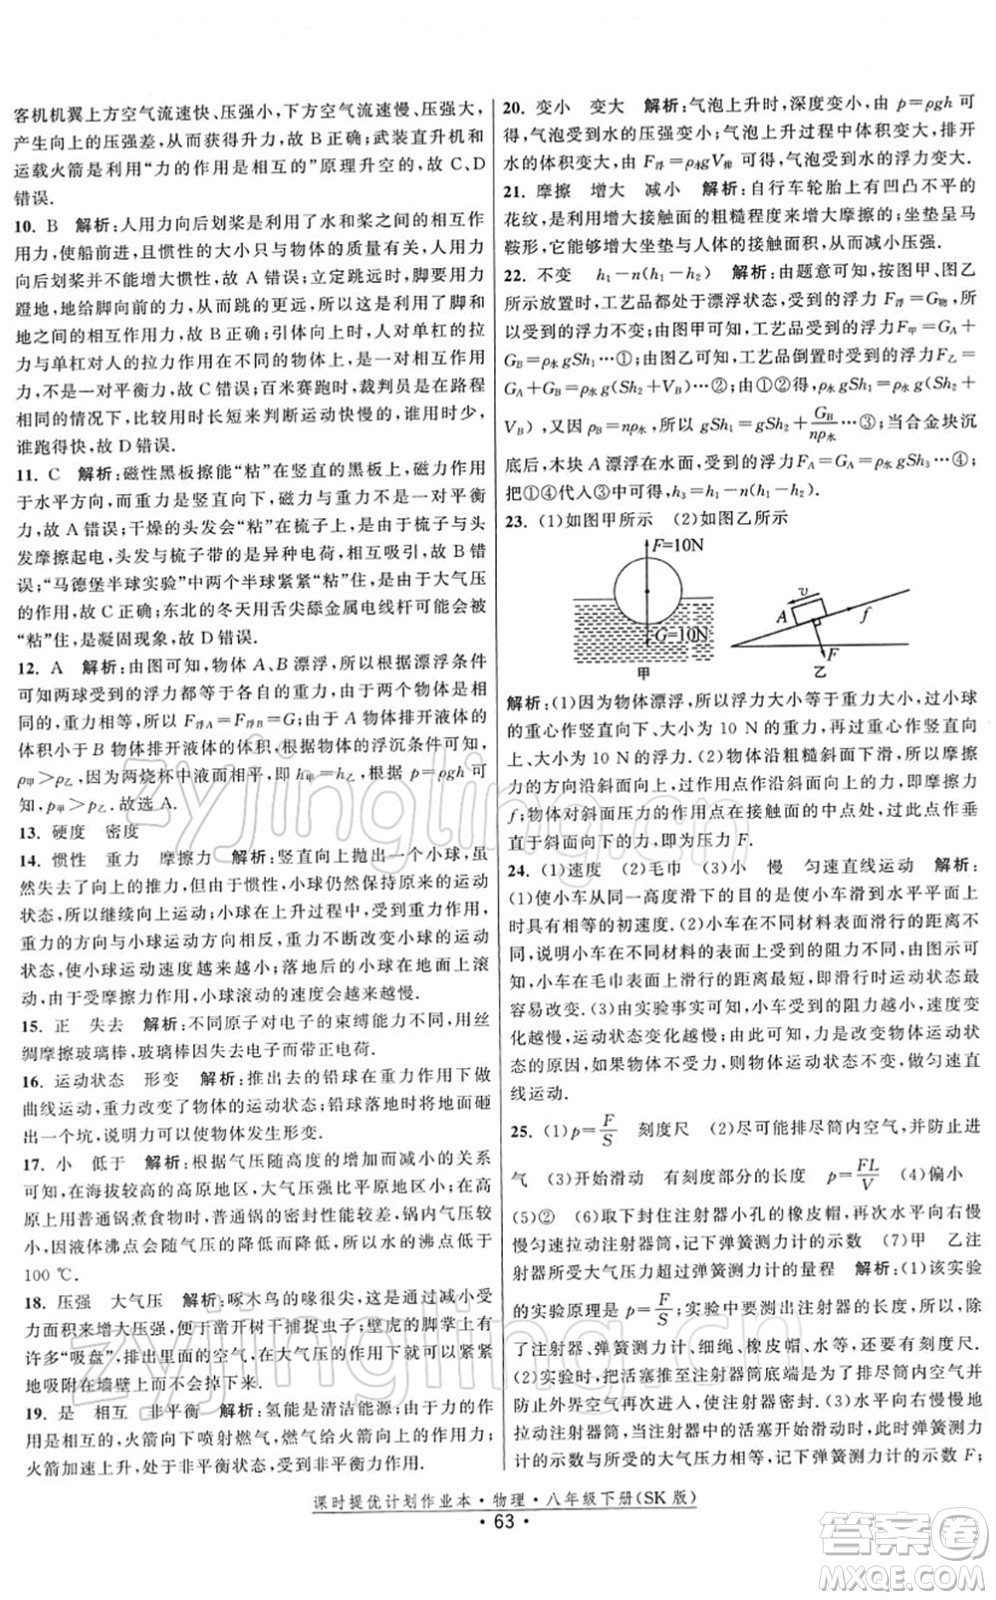 客机机翼上方空气流速快、压强小,下方空气流速慢、压强大,
产生向上的压强差,从而获得升力,故 B 正确;武装直升机和
运载火箭是利用“力的作用是相互的”原理升空的,故 C、D
错误.
10. B 解析:人用力向后划桨是利用了水和桨之间的相互作
用力,使船前进,且惯性的大小只与物体的质量有关,因此用力
向后划桨并不能增大惯性,故 A 错误;立定跳远时,脚要用力
蹬地,地给脚向前的力,从而跳的更远,所以这是利用了脚和
地之间的相互作用力,故 B 正确;引体向上时,人对单杠的拉
力与单杠对人的拉力作用在不同的物体上,是一对相互作用
力,不是一对平衡力,故 C 错误;百米赛跑时,裁判员是在路程
相同的情况下,比较用时长短来判断运动快慢的,谁用时少,
谁跑得快,故 D 错误.
11. C 解析:磁性黑板擦能“粘”在竖直的黑板上,磁力作用
于水平方向,而重力是竖直向下,磁力与重力不是一对平衡
力,故 A 错误;干燥的头发会“粘”在梳子上,是由于梳子与头
发摩擦起电,头发与梳子带的是异种电荷,相互吸引,故 B 错
误;“马德堡半球实验”中的两个半球紧紧“粘”在一起,是大气压
的作用,故 C 正确;东北的冬天用舌尖舔金属电线杆可能会被
“粘”住,是凝固现象,故 D 错误.
12. A 解析:由图可知,物体 A、B 漂浮,所以根据漂浮条件
可知两球受到的浮力都等于各自的重力,由于物体的质量是相
同的,重力相等,所以 F浮A＝F浮B＝G;由图知,A 物体排开液体的
体积小于 B 物体排开液体的体积,根据物体的浮沉条件可知,
ρ甲＞ρ乙,因为两烧杯中液面相平,即 h甲＝h乙,根据 p＝ρgh 可
知,p甲＞p乙.故选 A.
13. 硬度 密度
14. 惯性 重力 摩擦力 解析:竖直向上抛出一个小球,虽
然失去了向上的推力,但是,小球仍然可以保持原来的运动
状态,所以继续向上运动;小球在上升过程中,受到重力作用,
重力的方向与小球运动方向相反,重力不断改变小球的运动
状态,使小球运动速度越来越小;落地后小球在地面上的滚
动,由于受摩擦力作用,小球滚动的速度会越来越慢.
15. 正 失去 解析:不同原子对电子的束缚能力不同,用丝
绸摩擦玻璃棒,玻璃棒因失去电子而带正电荷.
16. 运动状态 形变 解析:推出去的铅球在重力作用下做
曲线运动,重力改变了物体的运动状态;铅球落地时将地面砸
出一个坑,说明力可以使物体发生形变.
17. 小 低于 解析:根据气压随高度的增加而减小的关系
可知,在海拔较高的高原地区,大气压强比平原地区小.在高
原上用普通锅煮食物时,普通锅的密封性能较差,锅内气压较
小,因液体沸点随气压的降低而降低,所以水的沸点低于
100 ℃.
18. 压强 大气压 解析:啄木鸟的喙很尖,这是通过减小受
力面积来增大压强,便于凿开树干捕捉虫子;壁虎的脚掌上有
许多“吸盘”,排出里面的空气,在大气压的作用下可以紧紧
地吸附在墙壁上而不会掉下来.
19. 是 相互 非平衡 解析:氢能是清洁能源;由于力的作
用是相互的,火箭向下喷射燃气,燃气给火箭向上的作用力;
火箭加速上升,处于非平衡状态,受到的力是非平衡力.
20. 变小 变大 解析:气泡上升时,深度变小,由 p＝ρgh 可
得,气泡受到水的压强变小;气泡上升过程中体积变大,排开
水的体积变大,由 F浮＝ρ水gV排 可得,气泡受到水的浮力变大.
21. 摩擦 增大 减小 解析:自行车轮胎上有凹凸不平的
花纹,是利用增大接触面的粗糙程度来增大摩擦的;坐垫呈马
鞍形,它能够增大坐垫与人体的接触面积,从而减小压强.
22. 不变 h₁－n(h₃－h₂) 解析:由题意可知,按图甲、图乙
所示放置时,工艺品都处于漂浮状态,受到的浮力 F浮＝G物,所
以受到的浮力不变;由图甲可知,工艺品受到的浮力F甲＝GA＋
GB＝ρ水gSh₁…①;由图乙可知,工艺品倒置时受到的浮力F乙＝
GA＋GB＝ρ水g(Sh₂＋VB)…②;由①②可得ρ水gSh₁＝ρ水g(Sh₂＋
VB),又因 ρB＝nρ水,所以 gSh₁＝gSh₂＋GB/nρ水…③;当合金块沉
底后,木块 A 漂浮在水面,受到的浮力FA＝GA＝ρ水gSh₃…④;
把①④代入③中可得,h₃＝h₁－n(h₃－h₂).
23. (1)如图甲所示 (2)如图乙所示
F=10N
G=10N
甲
A
v
f
F
乙
解析:(1)因为物体漂浮,所以浮力大小等于重力大小,过小球
的重心作竖直向下、大小为 10 N 的重力,再过重心作竖直向
上、大小为 10 N 的浮力.(2)物体沿粗糙斜面下滑,所以摩擦
力的方向沿斜面向上,从物体的重心起沿斜面向上画出摩擦力
f;物体对斜面压力的作用点在接触面的中点处,过压力作垂
直于斜面向下的力,即为压力 F.
24. (1)速度 (2)毛巾 (3)小 慢 匀速直线运动 解析:
(1)使小车从同一高度滑下的目的是使小车滑到水平平面上
时具有相等的初速度.(2)小车在不同材料表面滑行的距离不
同,说明小车在不同材料表面受到的阻力不同,由图示可
知,小车在毛巾表面上滑行的距离最短,即滑行时运动状态最
容易改变.(3)由实验事实可知,小车受到的阻力越小,速度变
化越慢,运动状态变化越慢;由此可知,力是改变物体运动状
态的原因,如果物体不受力,则物体运动状态不变,做匀速直
线运动.
25. (1)p＝F/S 刻度尺 (2)尽可能排尽筒内空气,并防止进
气 (3)开始滑动 有刻度部分的长度 p＝FL/V (4)偏小
(5)② (6)取下封住注射器小孔的橡皮帽,再次水平方向慢
慢匀速拉动注射器筒,记下弹簧测力计的示数 (7)甲 乙注射
器所受大气压力超过弹簧测力计的量程 解析:(1)该实验
的实验原理是 p＝F/S;实验中要测出注射器的容积,所以,除
了注射器、弹簧测力计、细绳、橡皮帽、水等,还要有刻度尺.
(2)实验中,把活塞推至注射器筒底端是为了排尽筒内空气并
防止进气.(3)实验时,用手沿水平方向慢慢地拉
动注射器筒,当注射器中的活塞开始滑动时,此时弹簧测力
计的示数等于大气对活塞的压力,记下弹簧测力计的示数 F;
课时提优计划作业本·物理·八年级下册(SK 版)
· 63 ·
zyjingling.cn
zyjingling.cn
答案圈
MXQE.COM